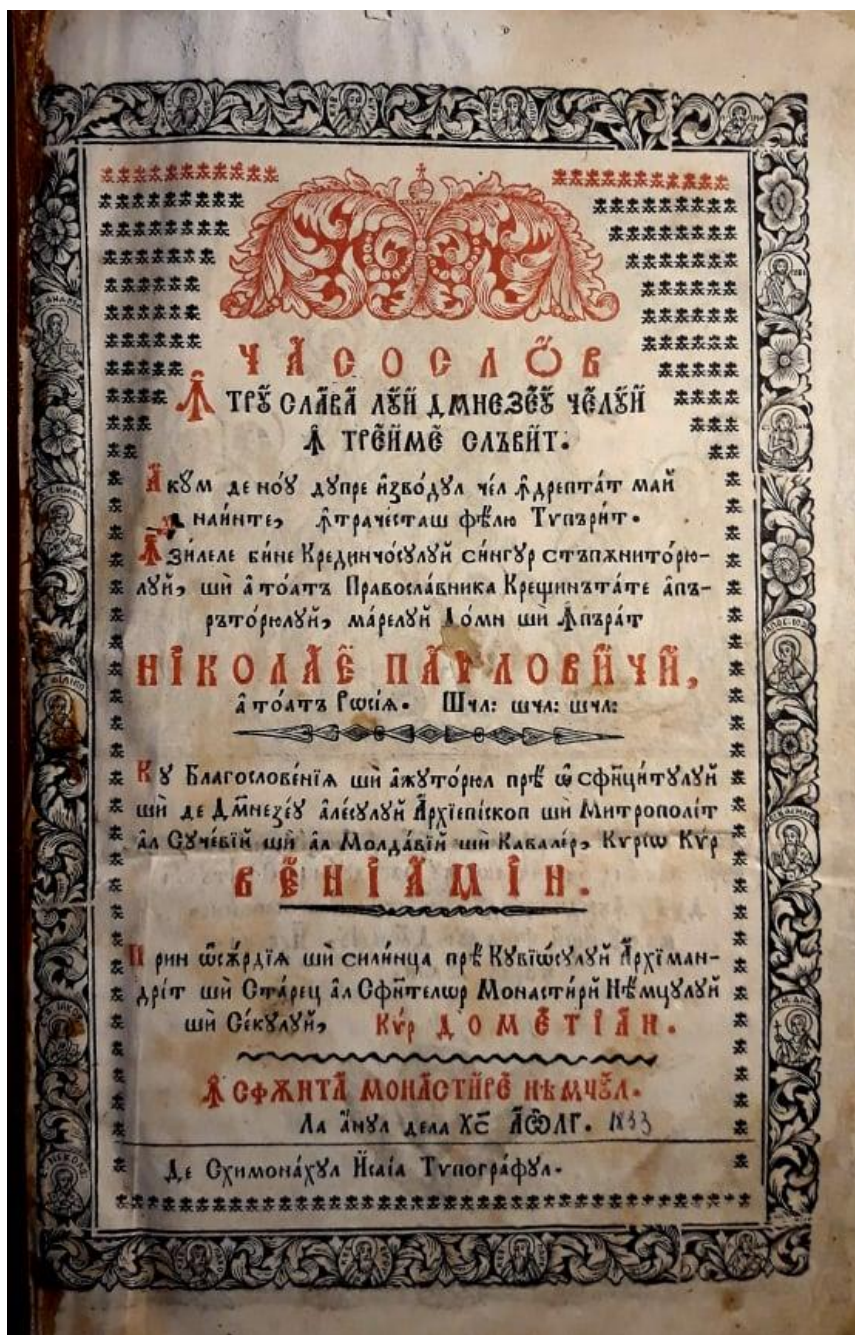 ЧА́СОСЛѠ́В
Ꙟ ТРꙊ СЛА́ВА ЛꙊЙ ДМНЕЗЕ́Ꙋ ЧЕ́ЛꙊЙ
Ꙟ ТРЕ́ИМЕ СЛЪВИ́Т.
Акꙋ́м де но́ꙋ дꙋпре и҆зво́дꙋл че́л ꙟдрепта́т май
наи́нте, ꙟтрачесташ фѣ́лю Тѵпъри́т.
Ꙟзи́леле би́не Крединчо́сꙋлꙋй си́нгꙋр стъпѫнито́рю-
лꙋй, шѝ а҆ то́атъ Правосла́вника Крещинъта́те а҆пъ-
ръто́рюлꙋй, ма́релꙋй До́мн шѝ Ꙟпъра́т
НІКОЛА́Е ПА́ѴЛОВИЧИ,
а҆ то́атъ Рѡсі́ѧ. Шчл: шчл: шчл:
Кꙋ Благослове́нїѧ шѝ а҆жꙋто́рюл прѣ ѡ҆сфи҃ци́тꙋлꙋй
шѝ де Дм҃незе́ꙋ а҆ле́сꙋлꙋй А҆рхїепі́скоп шѝ Митрополі́т
а҆л Сꙋче́вїй шѝ а҆л Молда́вїй шѝ Кавале́р, Кѵ́рїѡ Кѵ́р
ВЕ́НІА́МІ́Н.
При́н ѡ҆сѫ́рдїѧ шѝ сили́нца прѣ Кꙋвїѡ́сꙋлꙋй А҆рхїман-
дрі́т шѝ Ста́рец а҆л Сфи҃телѡр Монасти́рй Нѣ́мцꙋлꙋй
шѝ Се́кꙋлꙋй, Кѵ́р ДОМЕ́ТІА́Н.
Ꙟ СФѪНТА МОНАСТИ́РЕ НѢМЧꙊ́Л.
Ла а҆́нꙋл дела Хс҃ А҆Ѿ҃ЛГ. 1833
Де Схимона́хꙋл И҆са́їа Тѵпогра́фꙋл.